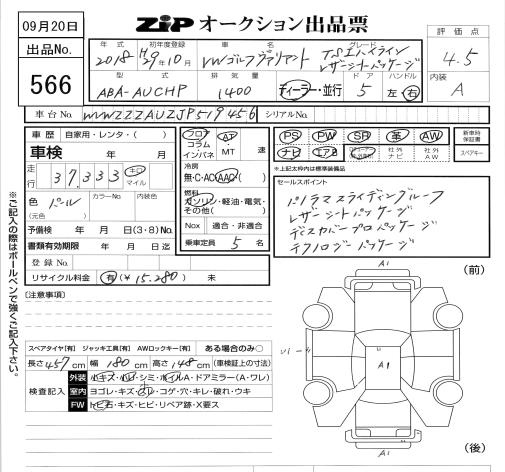 09月20日
ZIP オークション出品票
出品No.
566
年式 初年度登録 車名 グレード 評価点
2018 H29年10月 VWゴルフヴァリアント TSIハイライン レザーシートパッケージ 4.5
型式 排気量 ドア ハンドル 内装
ABA-AUCHP 1400 ディーラー・並行 5 左・右 A
車台No. WVWZZZAUZJP519456 シリアルNo.
車歴 自家用・レンタ・( )
車検 年 月
走行 37,333 キロ マイル
色 パール (元色) カラーNo. 内装色
予備検 年 月 日(3・8)No.
書類有効期限 年 月 日迄
登録No.
リサイクル料金 有(¥15,280) 未
フロア コラム インパネ AT・MT 速
冷房 無・C・AC・AAC
燃料 ガソリン・軽油・電気・その他( )
Nox 適合・非適合
乗車定員 5 名
PS PW SR 革 AW 新車時保証書
ナビ エアB 社外ナビ 社外AW スペアキー
*上記太枠内は標準装備品
セールスポイント
パノラマスライディングルーフ
レザーシートパッケージ
ディスカバープロパッケージ
テクノロジーパッケージ
※ご記入の際はボールペンで強くご記入下さい。
[注意事項]
スペアタイヤ[有] ジャッキ工具[有] AWロックキー[有] ある場合のみ○
長さ 457 cm 幅 180 cm 高さ 148 cm (車検証上の寸法)
検査記入
外装 小キズ・小凹・シミ・ホイルA・ドアミラー(A・ワレ)
室内 ヨゴレ・キズ・スレ・コゲ・穴・キレ・破れ・ウキ
FW トビ石・キズ・ヒビ・リペア跡・X要ス
A1
(前)
A1
A1
(後)